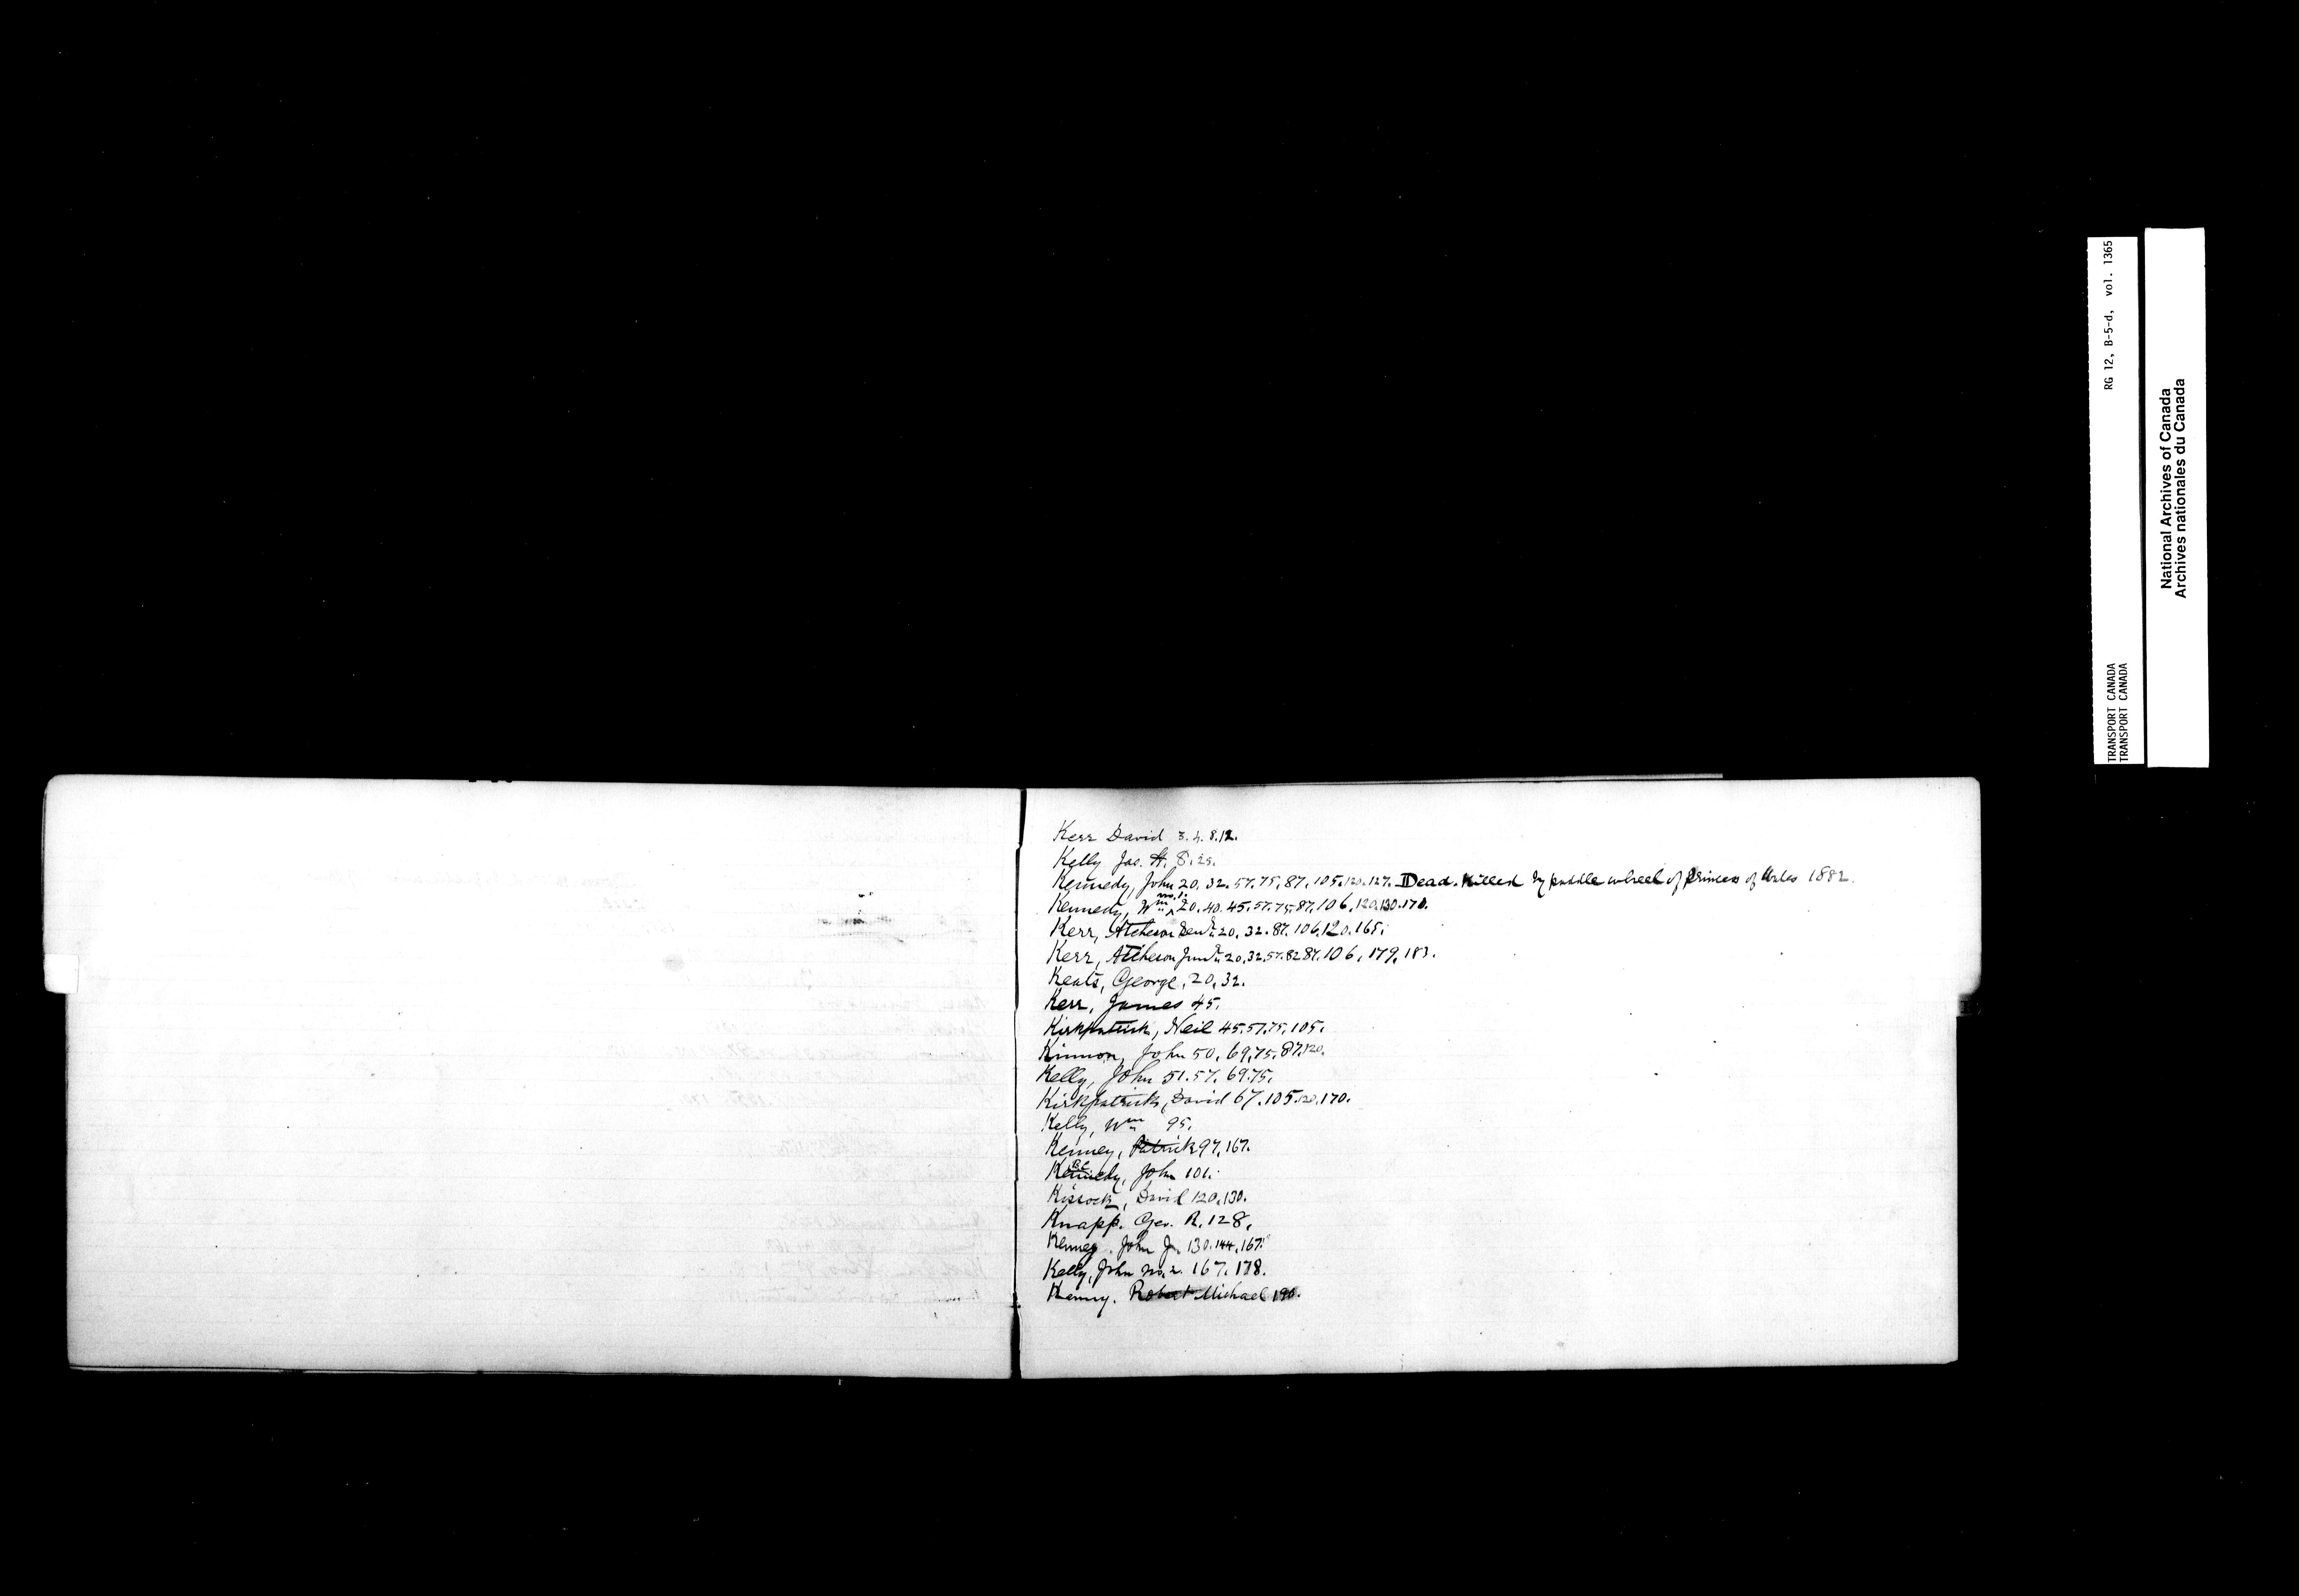 Kerr David 3. 4. 8. 12.
Kelly Jas. H. 8. 25.
Kennedy, John 20. 32. 57. 75. 87. 105. 120. 127. Dead. Killed by paddle wheel of Princess of Wales 1882.
Kennedy, Wm no. 1. 20. 40. 45. 57. 75. 87. 106. 120. 130. 170.
Kerr, Atcheson Senr. 20. 32. 87. 106. 120. 165.
Kerr, Atcheson Junr. 20. 32. 57. 82 87. 106. 179. 183.
Keats, George. 20. 32.
Kerr, James 45.
Kirkpatrick, Neil 45. 57. 75. 105.
Kinnon, John 50. 69. 75. 87. 120.
Kelly, John 51. 57. 69. 75.
Kirkpatrick, David 67. 105. 120. 170.
Kelly, Wm 95.
Kenney, Patrick 97. 167.
Kennedy, John 101.
Kissock, David 120. 130.
Knapp. Geo. R. 128.
Kenney. John J. 130. 144. 167.
Kelly, John no. 2. 167. 178.
Kenny. Robert Michael 190.
RG 12, B-5-d, vol. 1365
TRANSPORT CANADA
TRANSPORT CANADA
National Archives of Canada
Archives nationales du Canada